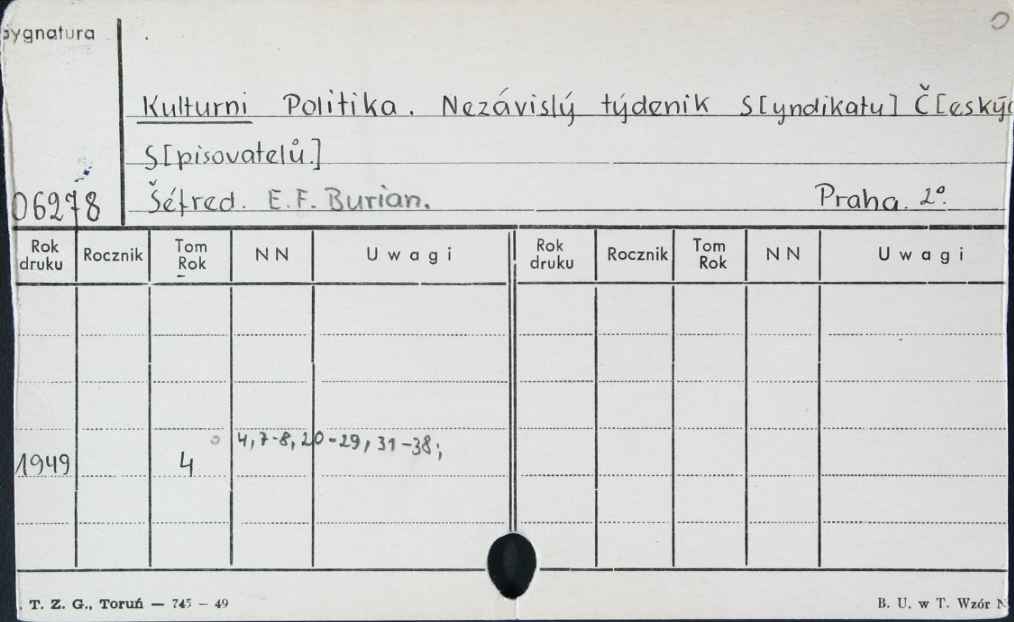 Sygnatura
Kulturni Politika. Nezávislý týdenik S[yndikatu] Č[eskýc
S[pisovatelů.]
06278 Šéfred. E. F. Burian. Praha. 2°.
Rok druku Rocznik Tom Rok NN Uwagi Rok druku Rocznik Tom Rok NN Uwagi
4, 7-8, 20-29, 31-38;
1949 4
T. Z. G., Toruń — 745 - 49 B. U. w T. Wzór N